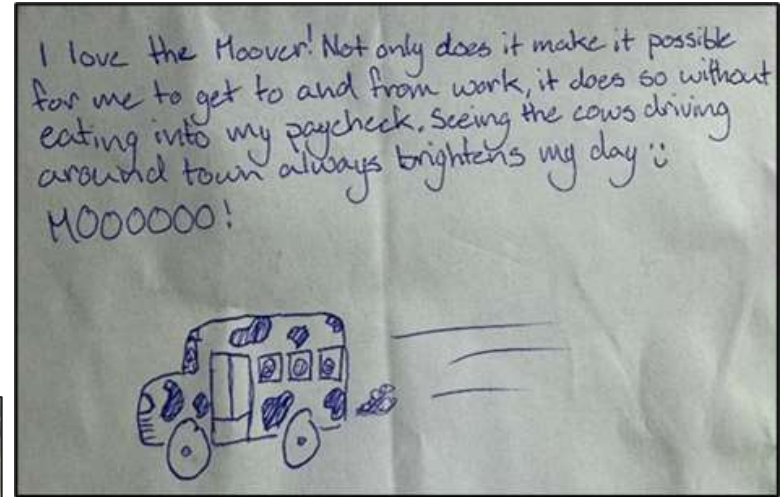 I love the Moover! Not only does it make it possible
for me to get to and from work, it does so without
eating into my paycheck. Seeing the cows driving
around town always brightens my day :)
MOOOOOO!